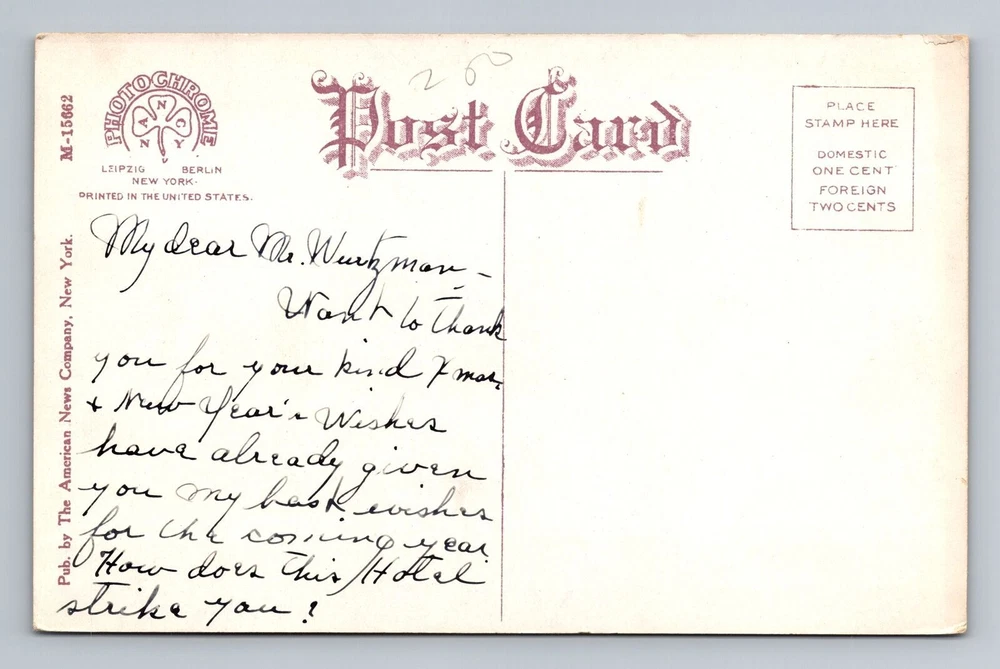 2 50
Post Card
M-15662
PHOTOCHROME
NANCY
LEIPZIG BERLIN
NEW YORK-
PRINTED IN THE UNITED STATES.
PLACE
STAMP HERE
DOMESTIC
ONE CENT
FOREIGN
TWO CENTS
Pub. by The American News Company, New York.
My dear Mr. Wurtzman -
Want to thank
you for your kind Xmas
+ New Year's Wishes
have already given
you my best wishes
for the coming year.
How does this Hotel
strike you ?